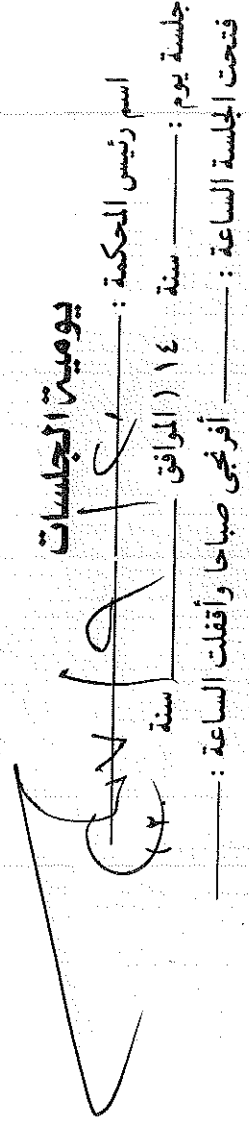 يومية الجلسات
اسم رئيس المحكمة :
جلسة يوم : سنة ١٤ ( الموافق سنة ٢٠ )
فتحت الجلسة الساعة : أفرنجى صباحا وأقفلت الساعة :